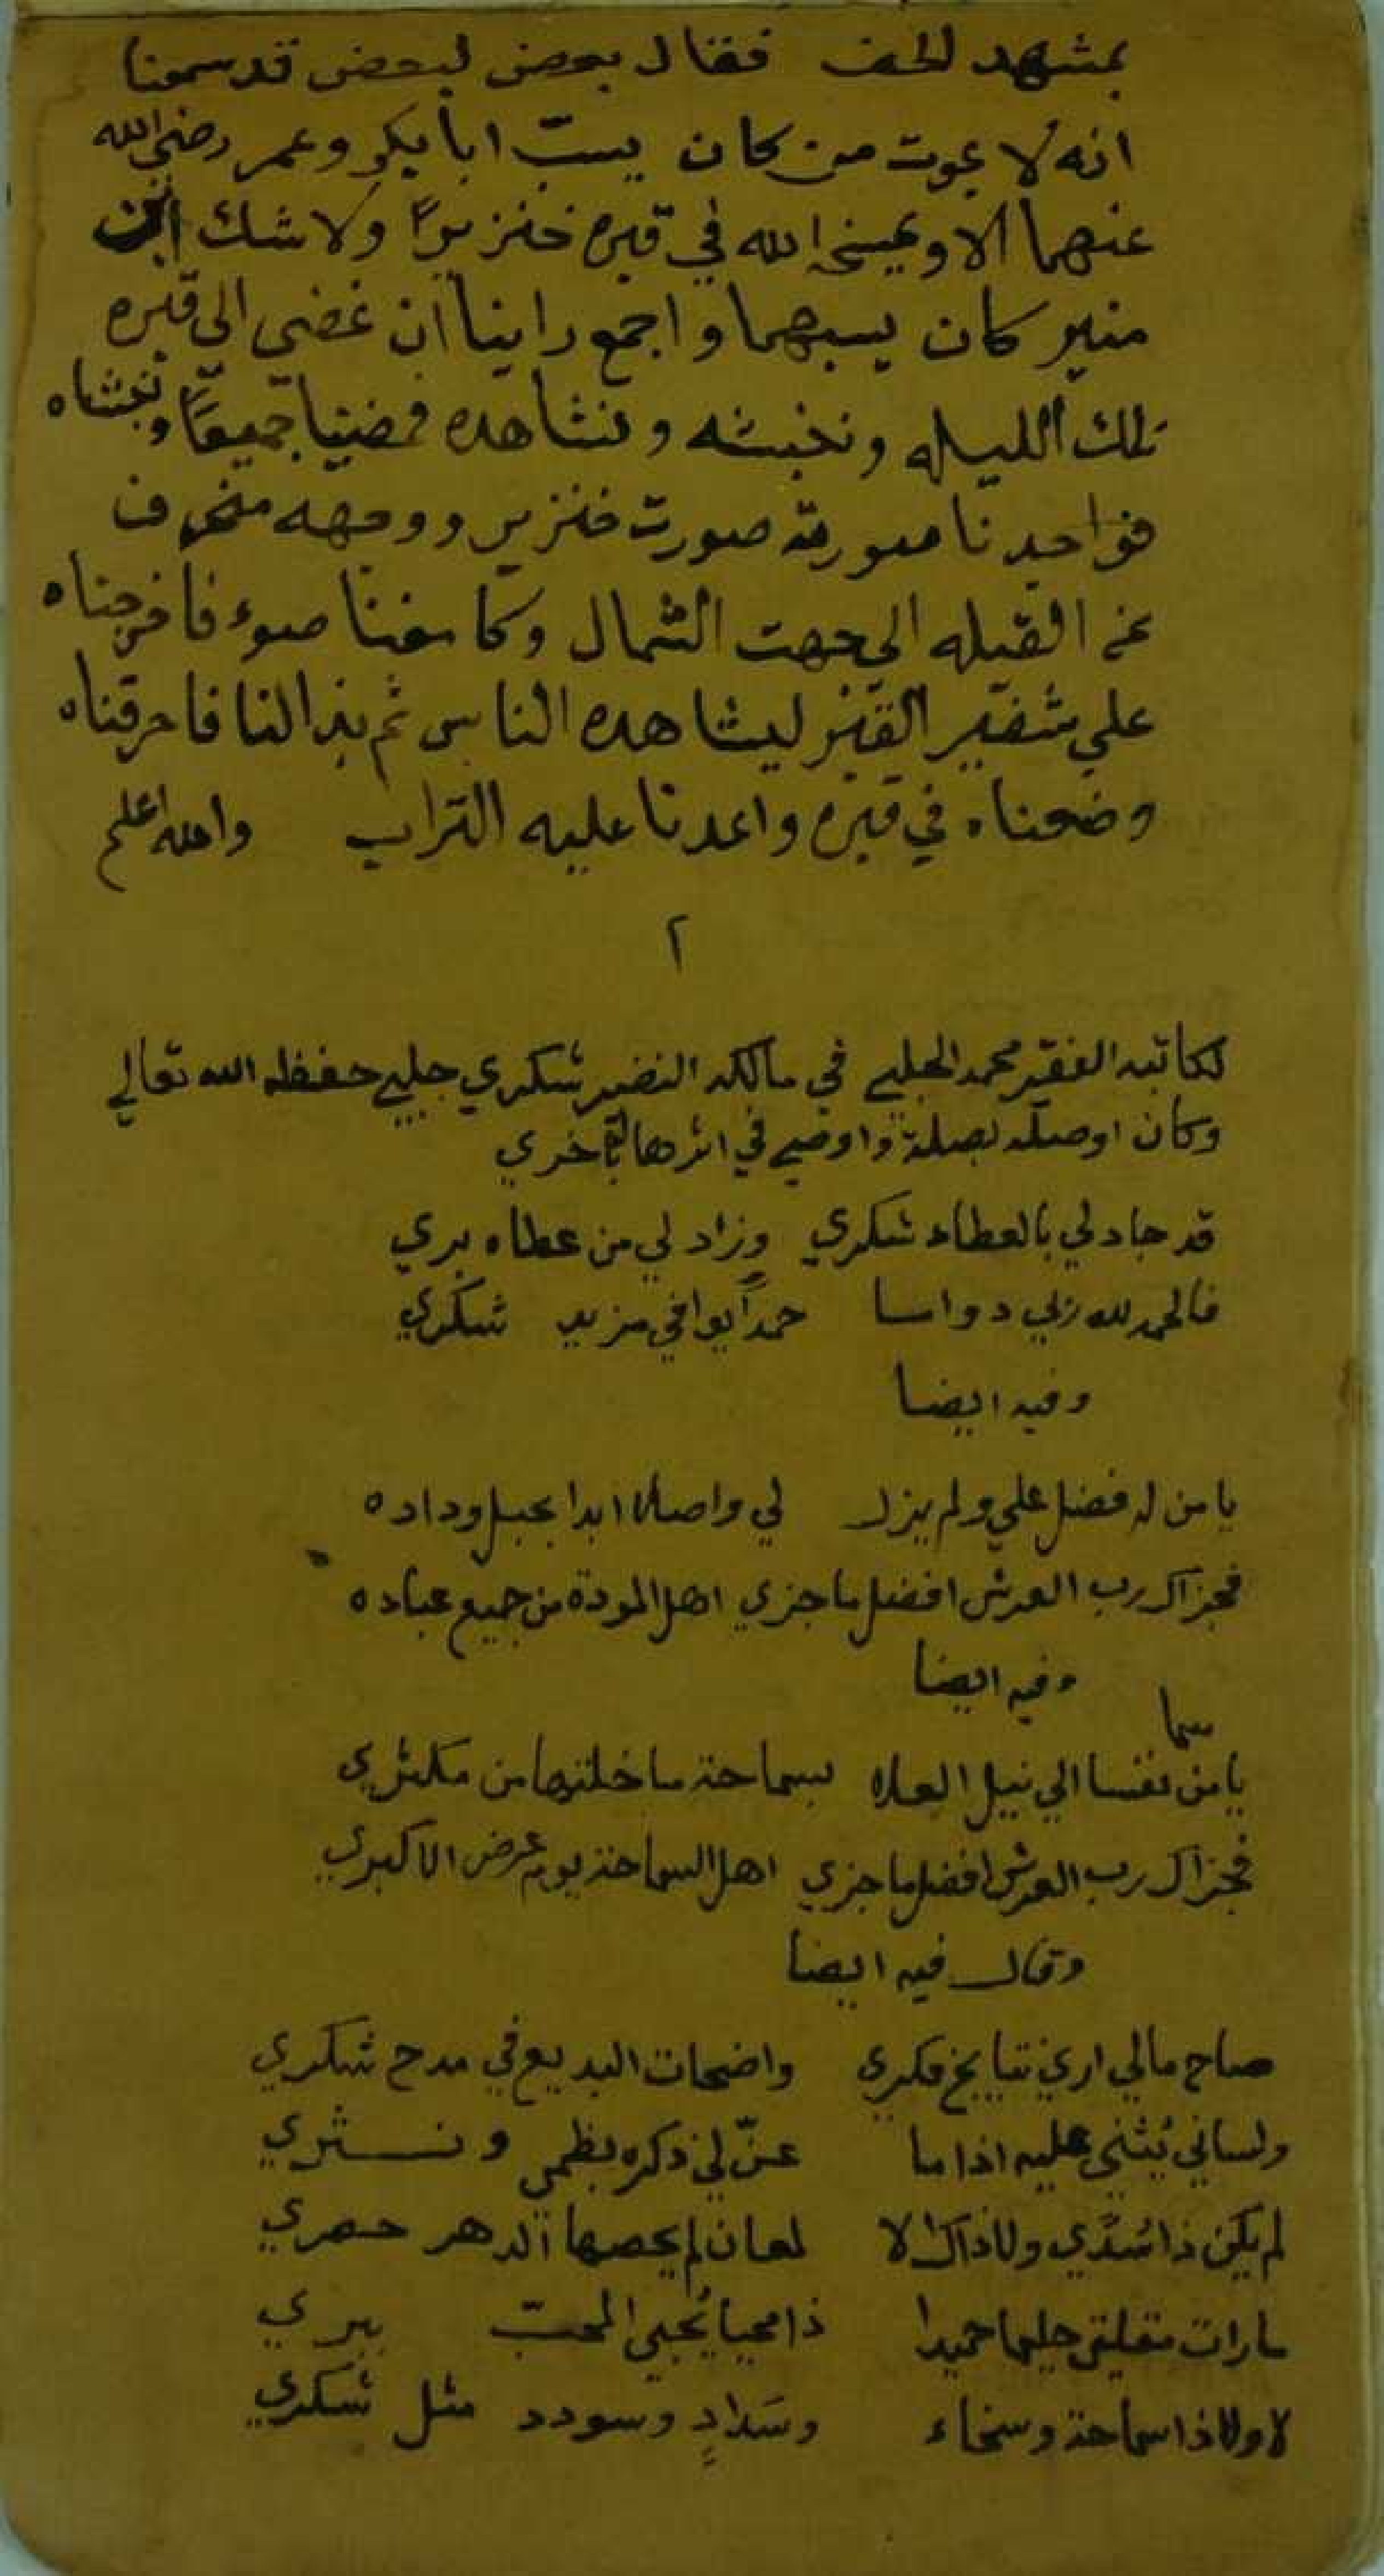 بمشهد الحف فقال بعض لبعض قد سمعنا
انه لا يموت من كان يسبّ ابا بكر وعمر رضي الله
عنهما الا ويمسخه الله في قبره خنزيرًا ولا شك ان ابن
منير كان يسبهما واجمع راينا ان نمضي الى قبره
تلك الليله وننبشه ونشاهده فمضينا جميعًا ونبشناه
فواجدنا صورته صورت خنزير ووجهه منحرف
عن القبله الى جهت الشمال وكا معنا ضوء فاخرجناه
على شفير القبر ليشاهده الناس ثم بدا لنا فاحرقناه
وضعناه في قبره واعدنا عليه التراب والله اعلم
٢
لكاتبه الفقير محمد الجلبي في مالكه النضير شكري جلبي حفظه الله تعالى
وكان اوصله بصلة واوضح في اثرها باخري
قد جاد لي بالعطاء شكري وزاد لي من عطاه بري
فالحمد لله ربي دواما حمدًا يوافي مزيد شكري
وفيه ايضا
يا من له فضل علي ولم يزل لي واصلا ابدا بحبل وداده
فجزاك رب العرش افضل ما جزي اهل المودة من جميع عباده
وفيه ايضا
سما
يا من نفسا الي نيل العلا بسماحة ما خلتها من مكثري
فجزاك رب العرش افضل ما جزي اهل السماحة يوم عرض الاكبري
وقال فيه ايضا
صاح مالي اري نتايج فكري واضحات البديع في مدح شكري
ولساني يُثني عليه اذا ما عنّ لي ذكره بنظمي ونثري
لم يكن ذا سُدًي ولا ذاك الا لمعان لم يحصها الدهر حصري
ما رات مقلتي حليما حميدا ذا محيا يُحيي المحبّ ببري
لا ولا ذا سماحة وسخاء وسَدادٍ وسودد مثل شكري